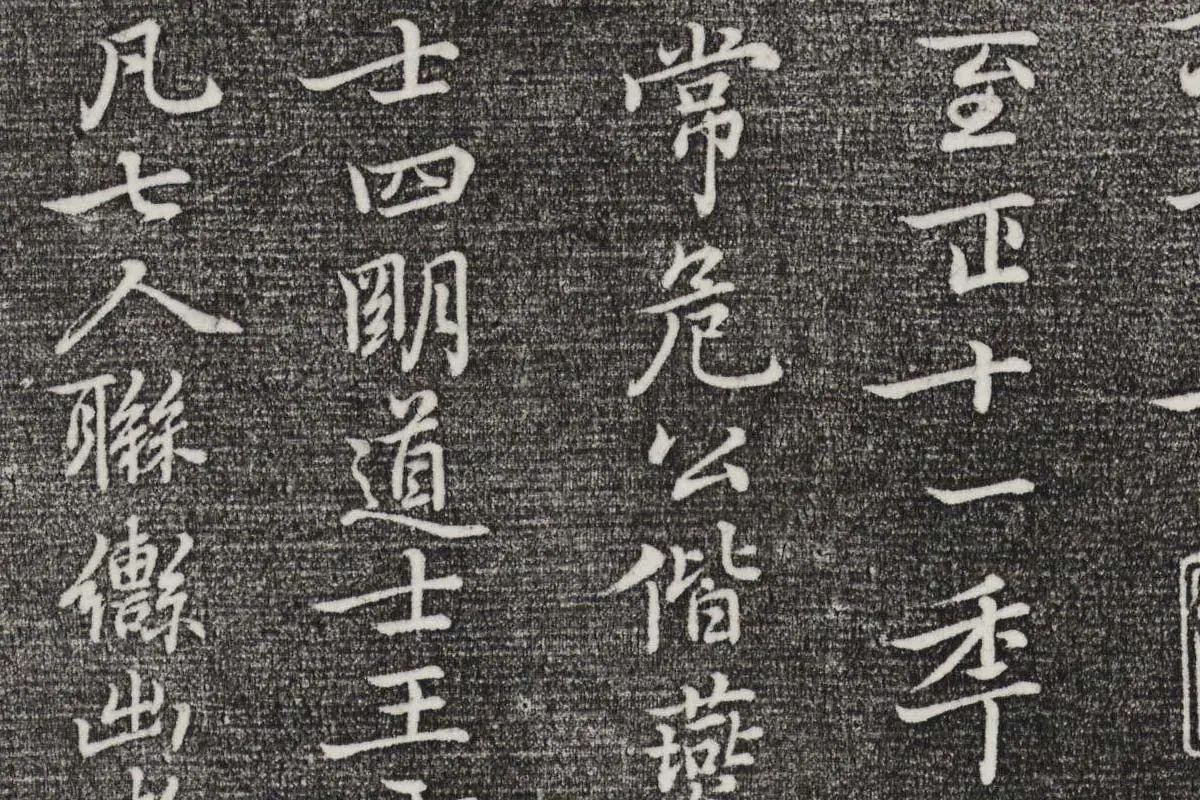 至正十一年
常危公偕燕
士四明道士王
凡七人聯轡出